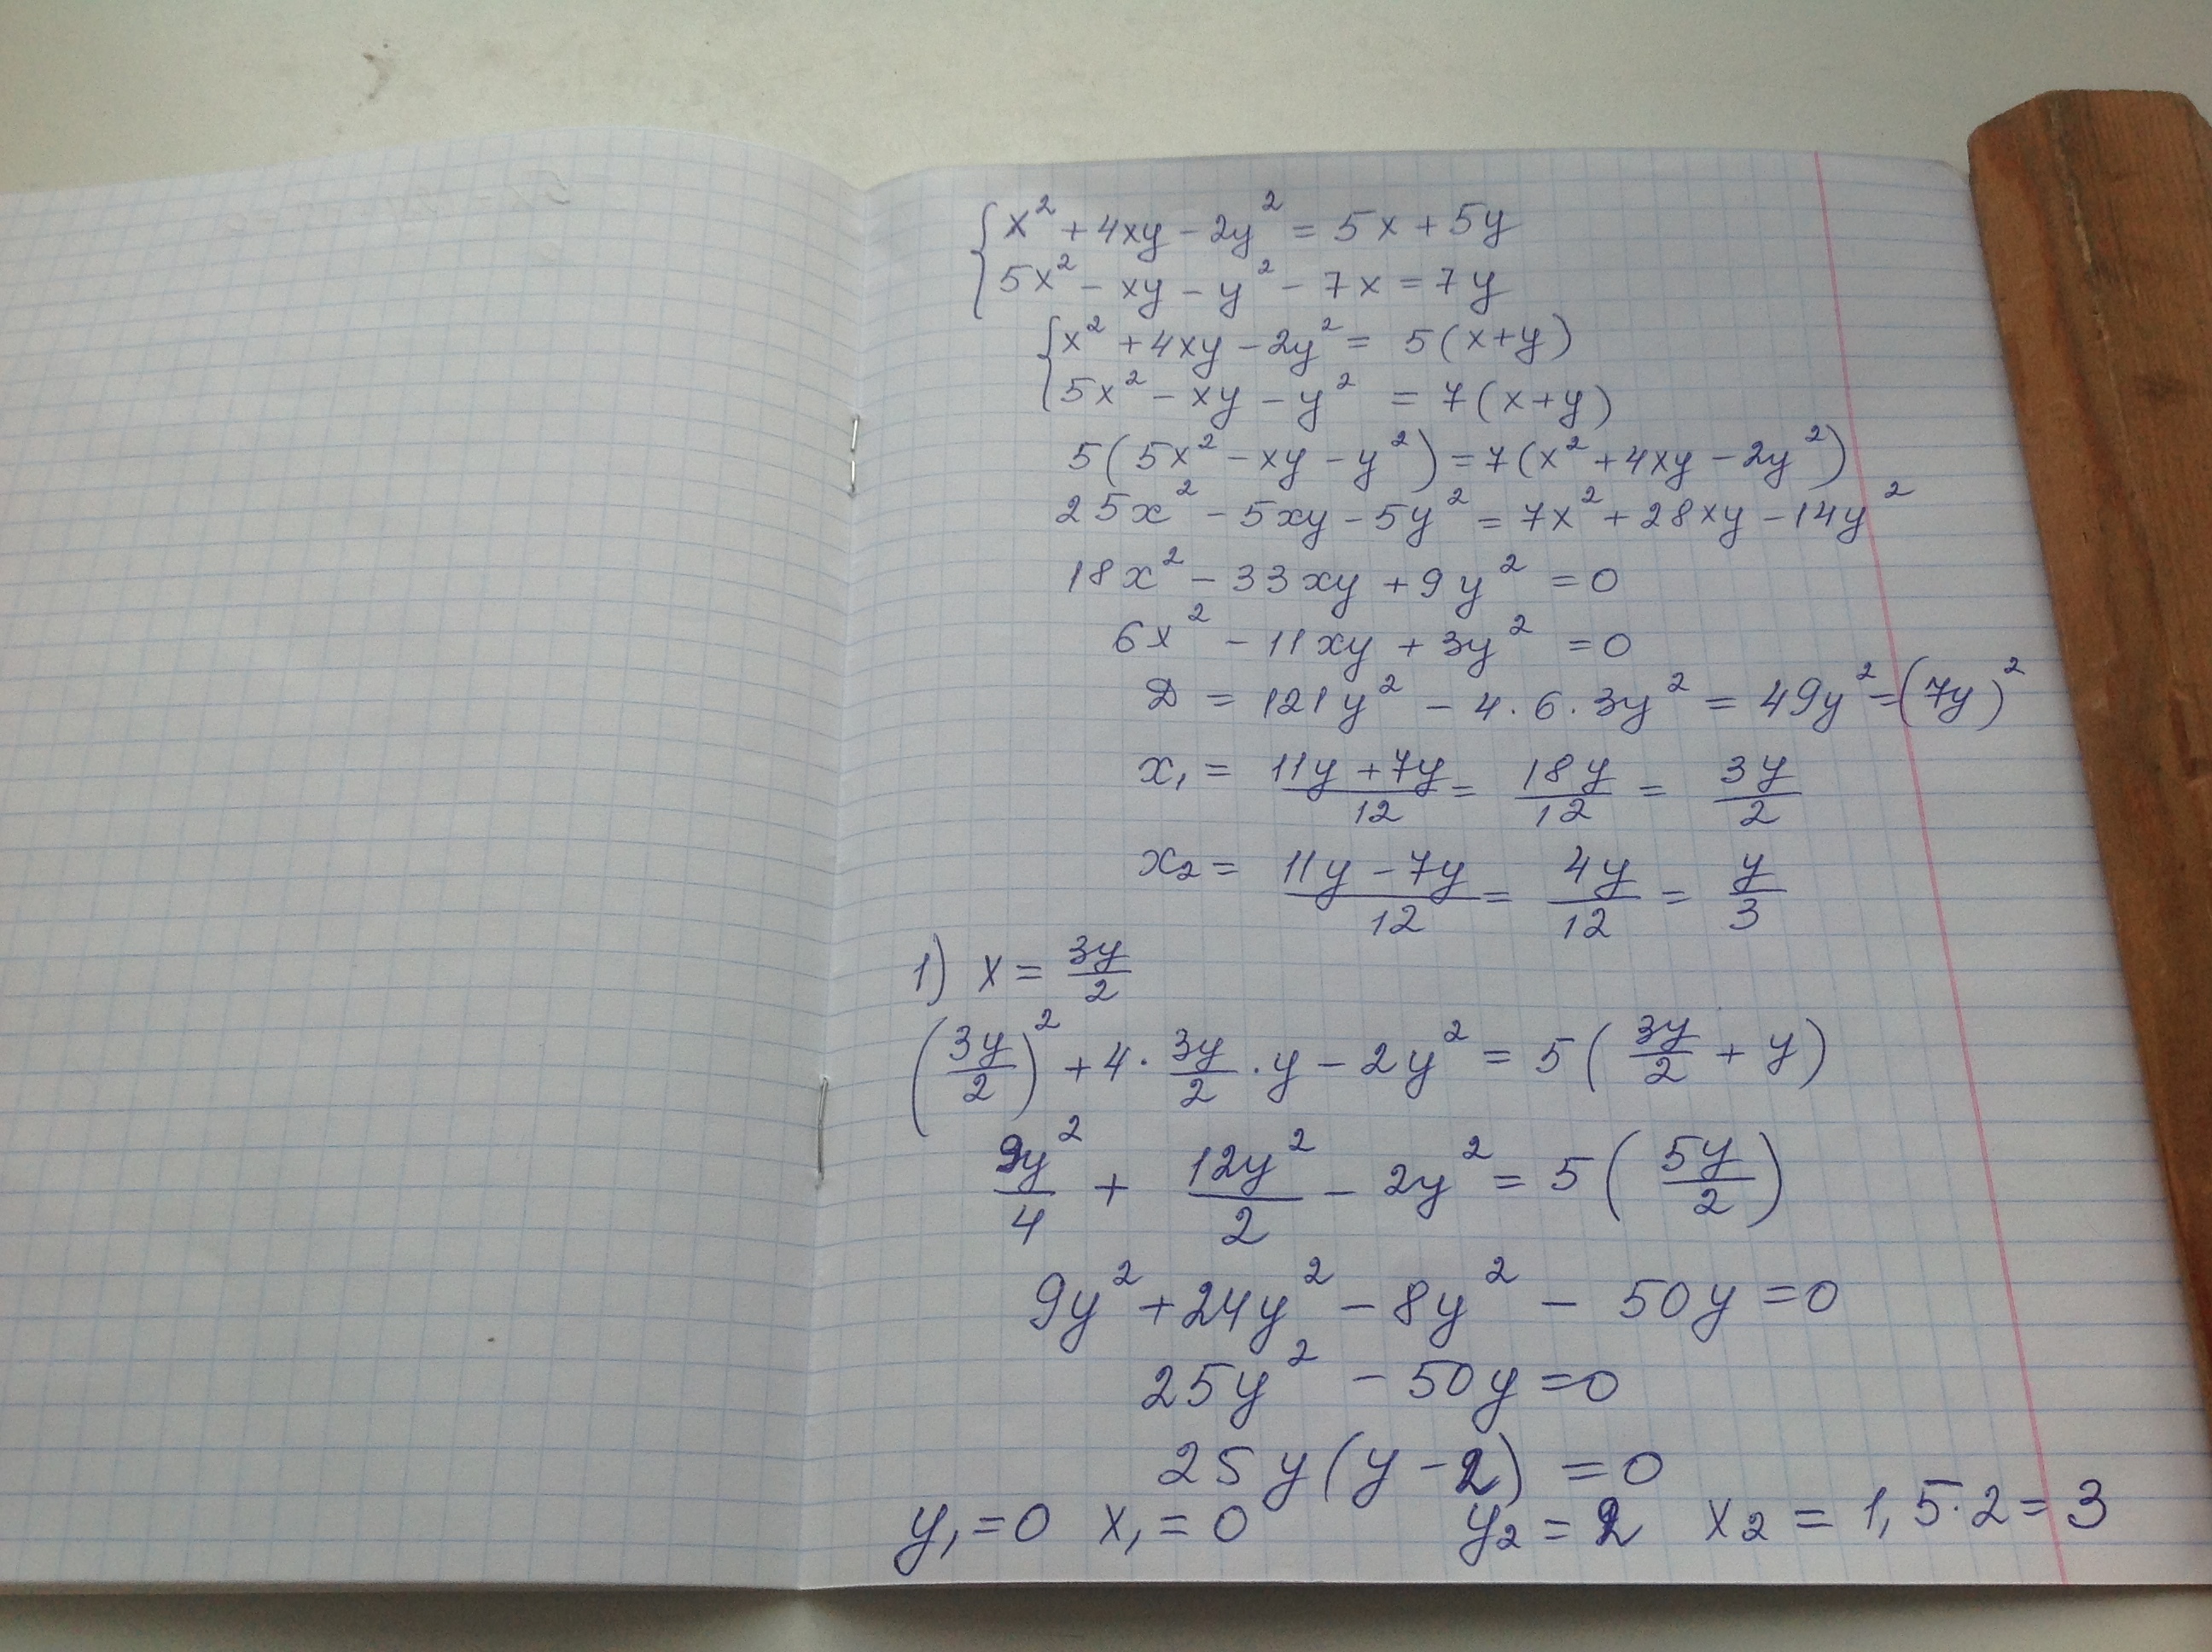 { x² + 4xy - 2y² = 5x + 5y
5x² - xy - y² - 7x = 7y
{ x² + 4xy - 2y² = 5(x+y)
5x² - xy - y² = 7(x+y)
5(5x² - xy - y²) = 7(x² + 4xy - 2y²)
25x² - 5xy - 5y² = 7x² + 28xy - 14y²
18x² - 33xy + 9y² = 0
6x² - 11xy + 3y² = 0
D = 121y² - 4·6·3y² = 49y² = (7y)²
x₁ = (11y + 7y)/12 = 18y/12 = 3y/2
x₂ = (11y - 7y)/12 = 4y/12 = y/3
1) x = 3y/2
(3y/2)² + 4 · 3y/2 · y - 2y² = 5(3y/2 + y)
9y²/4 + 12y²/2 - 2y² = 5(5y/2)
9y² + 24y² - 8y² - 50y = 0
25y² - 50y = 0
25y(y - 2) = 0
y₁ = 0 x₁ = 0 y₂ = 2 x₂ = 1,5·2 = 3